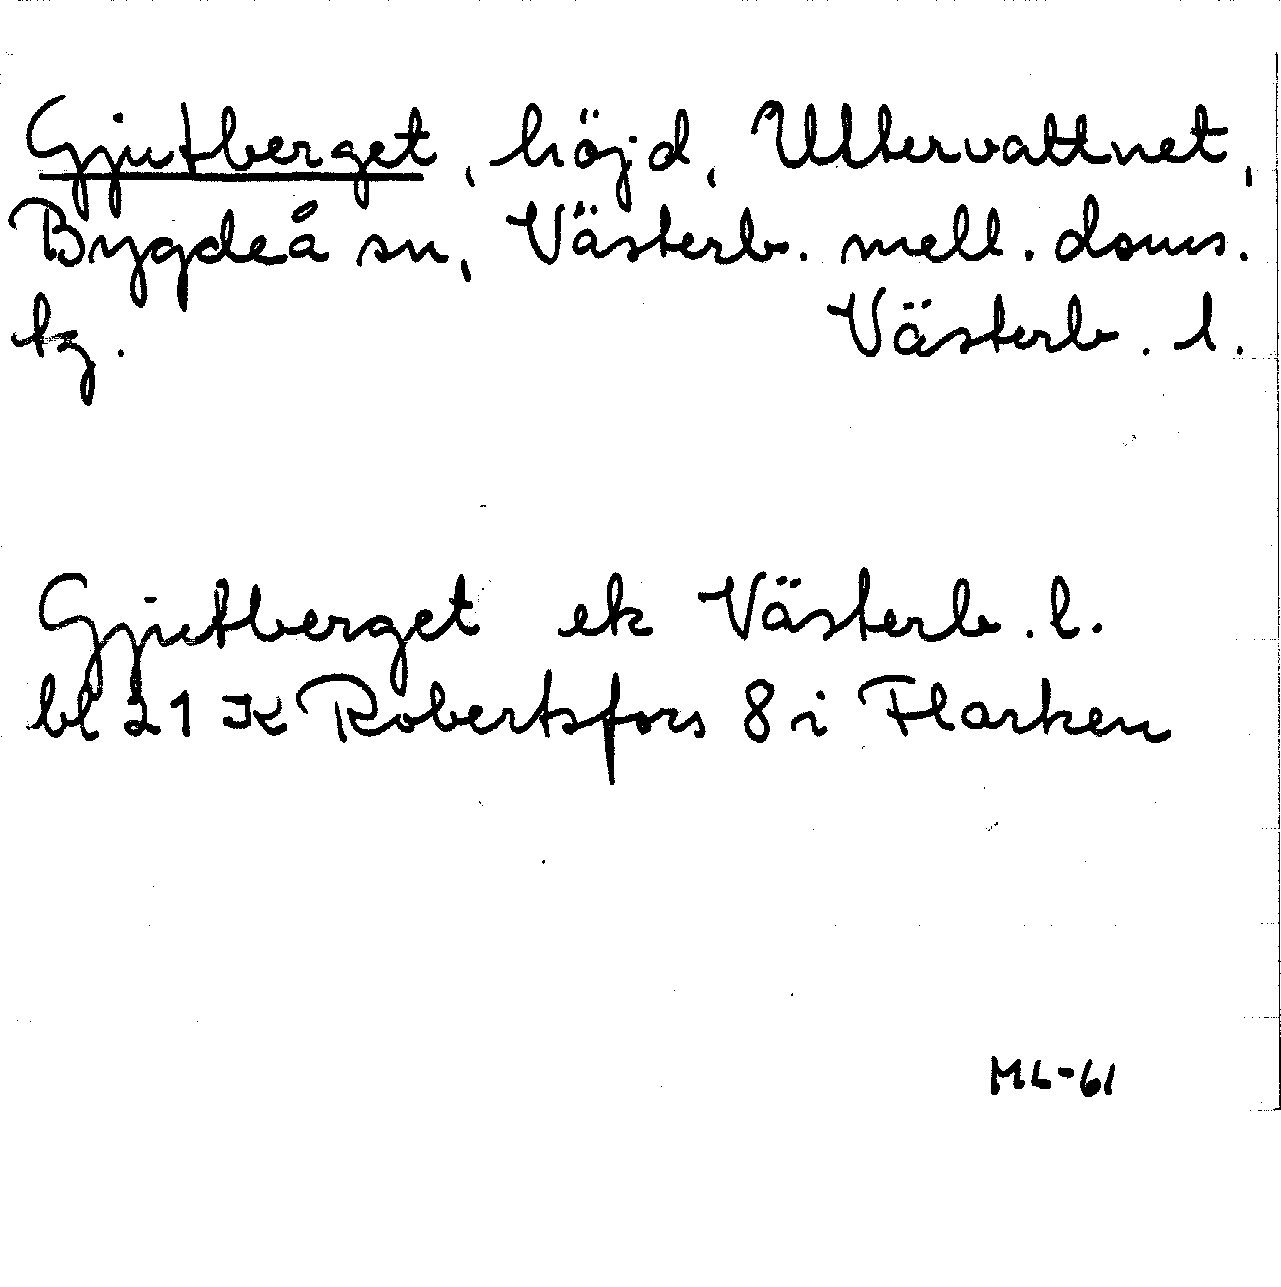 Gjutberget, höjd, Ultervattnet,
Bygdeå sn, Västerb. mell. doms.
tz. Västerb. l.
Gjutberget ek Västerb. l.
bl 21 K Robertsfors 8 i Flarken
ML-61